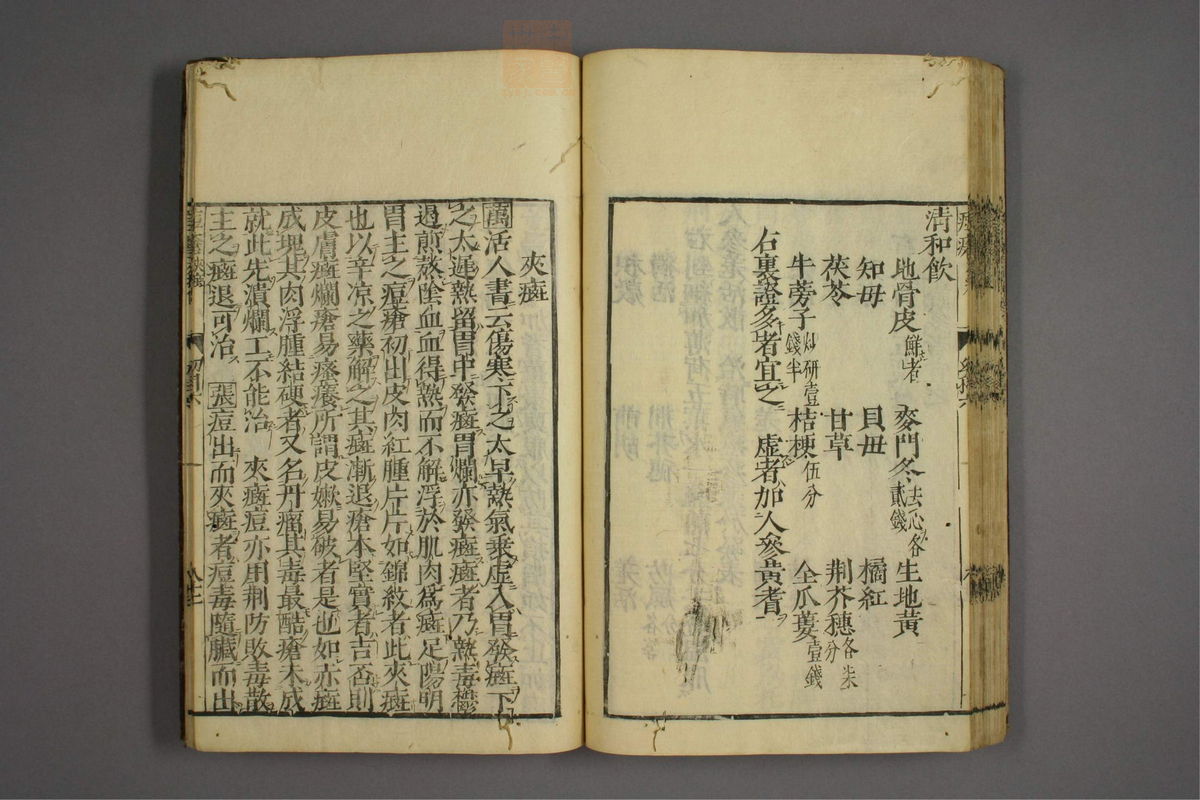 清和飲
地骨皮鮮者 麥門冬去心各貳錢 生地黃
知母 貝母 橘紅
茯苓 甘草 荆芥穗各柒分
牛蒡子炒研壹錢半 桔梗伍分 全瓜蔞壹錢
右裏證多者宜之 虛者加人參黃耆
夾癍
萬活人書云傷寒下之太早熱氣乘虛入胃發癍下
之太遲熱留胃中發癍胃爛亦發癍癍者乃熱毒鬱
過煎熬陰血血得熱而不解浮於肌肉爲癍足陽明
胃主之痘瘡初出皮肉紅腫片片如錦紋者此夾癍
也以辛凉之藥解之其癍漸退瘡本堅實者吉否則
皮膚癍爛瘡易癢所謂皮嫩易破者是也如赤癍
成塊其肉浮腫結硬者又名丹瘤其毒最酷瘡未成
就此先潰爛工不能治 夾癍痘亦用荆防敗毒散
主之癍退可治 張痘出而夾癍者痘毒隨臟而出